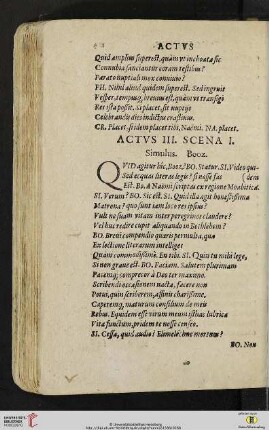 ACTVS
Quid amplius superest, quàm vt inchoata sic
Connubia sanciantur coram testibus?
Parato nuptiali mox conuiuio?
PH. Nihil aliud quidem superest. Sed ingruit
Vesper, tempusq́; breuius est, quàm vt transigi
Res ista possit. Si placet, sit nuptijs
Celebrandis dies indictus crastinus.
CR. Placet. si idem placet tibi, Naëmi. NA. placet.
ACTVS III. SCENA I.
Simulus. Booz.
QVID agitur hîc, Booz? BO. Statur. SI. Video qui-
Sed ecquae literae legis? si esse fas (dem
Est. Bo. A Naëmi scriptae ex regione Moabitica.
SI. Verum? BO. Sic est. SI. Quid illa agit honestissima
Matrona? quo sunt iam loco res ipsius?
Vult ne suam vitam inter peregrinos claudere?
Vel huc redire cupit aliquando in Bethlehem?
BO. Breui compendio quaeris permulta, qua
Ex lectione literarum intellige
Quàm commodissimè. En tibi. SI. Quin tu mihi lege,
Si non graue est. BO. Faciam. Salutem plurimam
Pacemq́; comprecor à Deo ter maximo.
Scribendi occasionem nacta, facere non
Potui, quin scriberem, affinis charissime,
Caperemq́; maturum consilium de meis
Rebus. Equidem esse virum meum istâc lubrica
Vita functum, pridem te nosse censeo.
SI. Cessa, quid audio? Elimelechme mortuus?
BO. Non